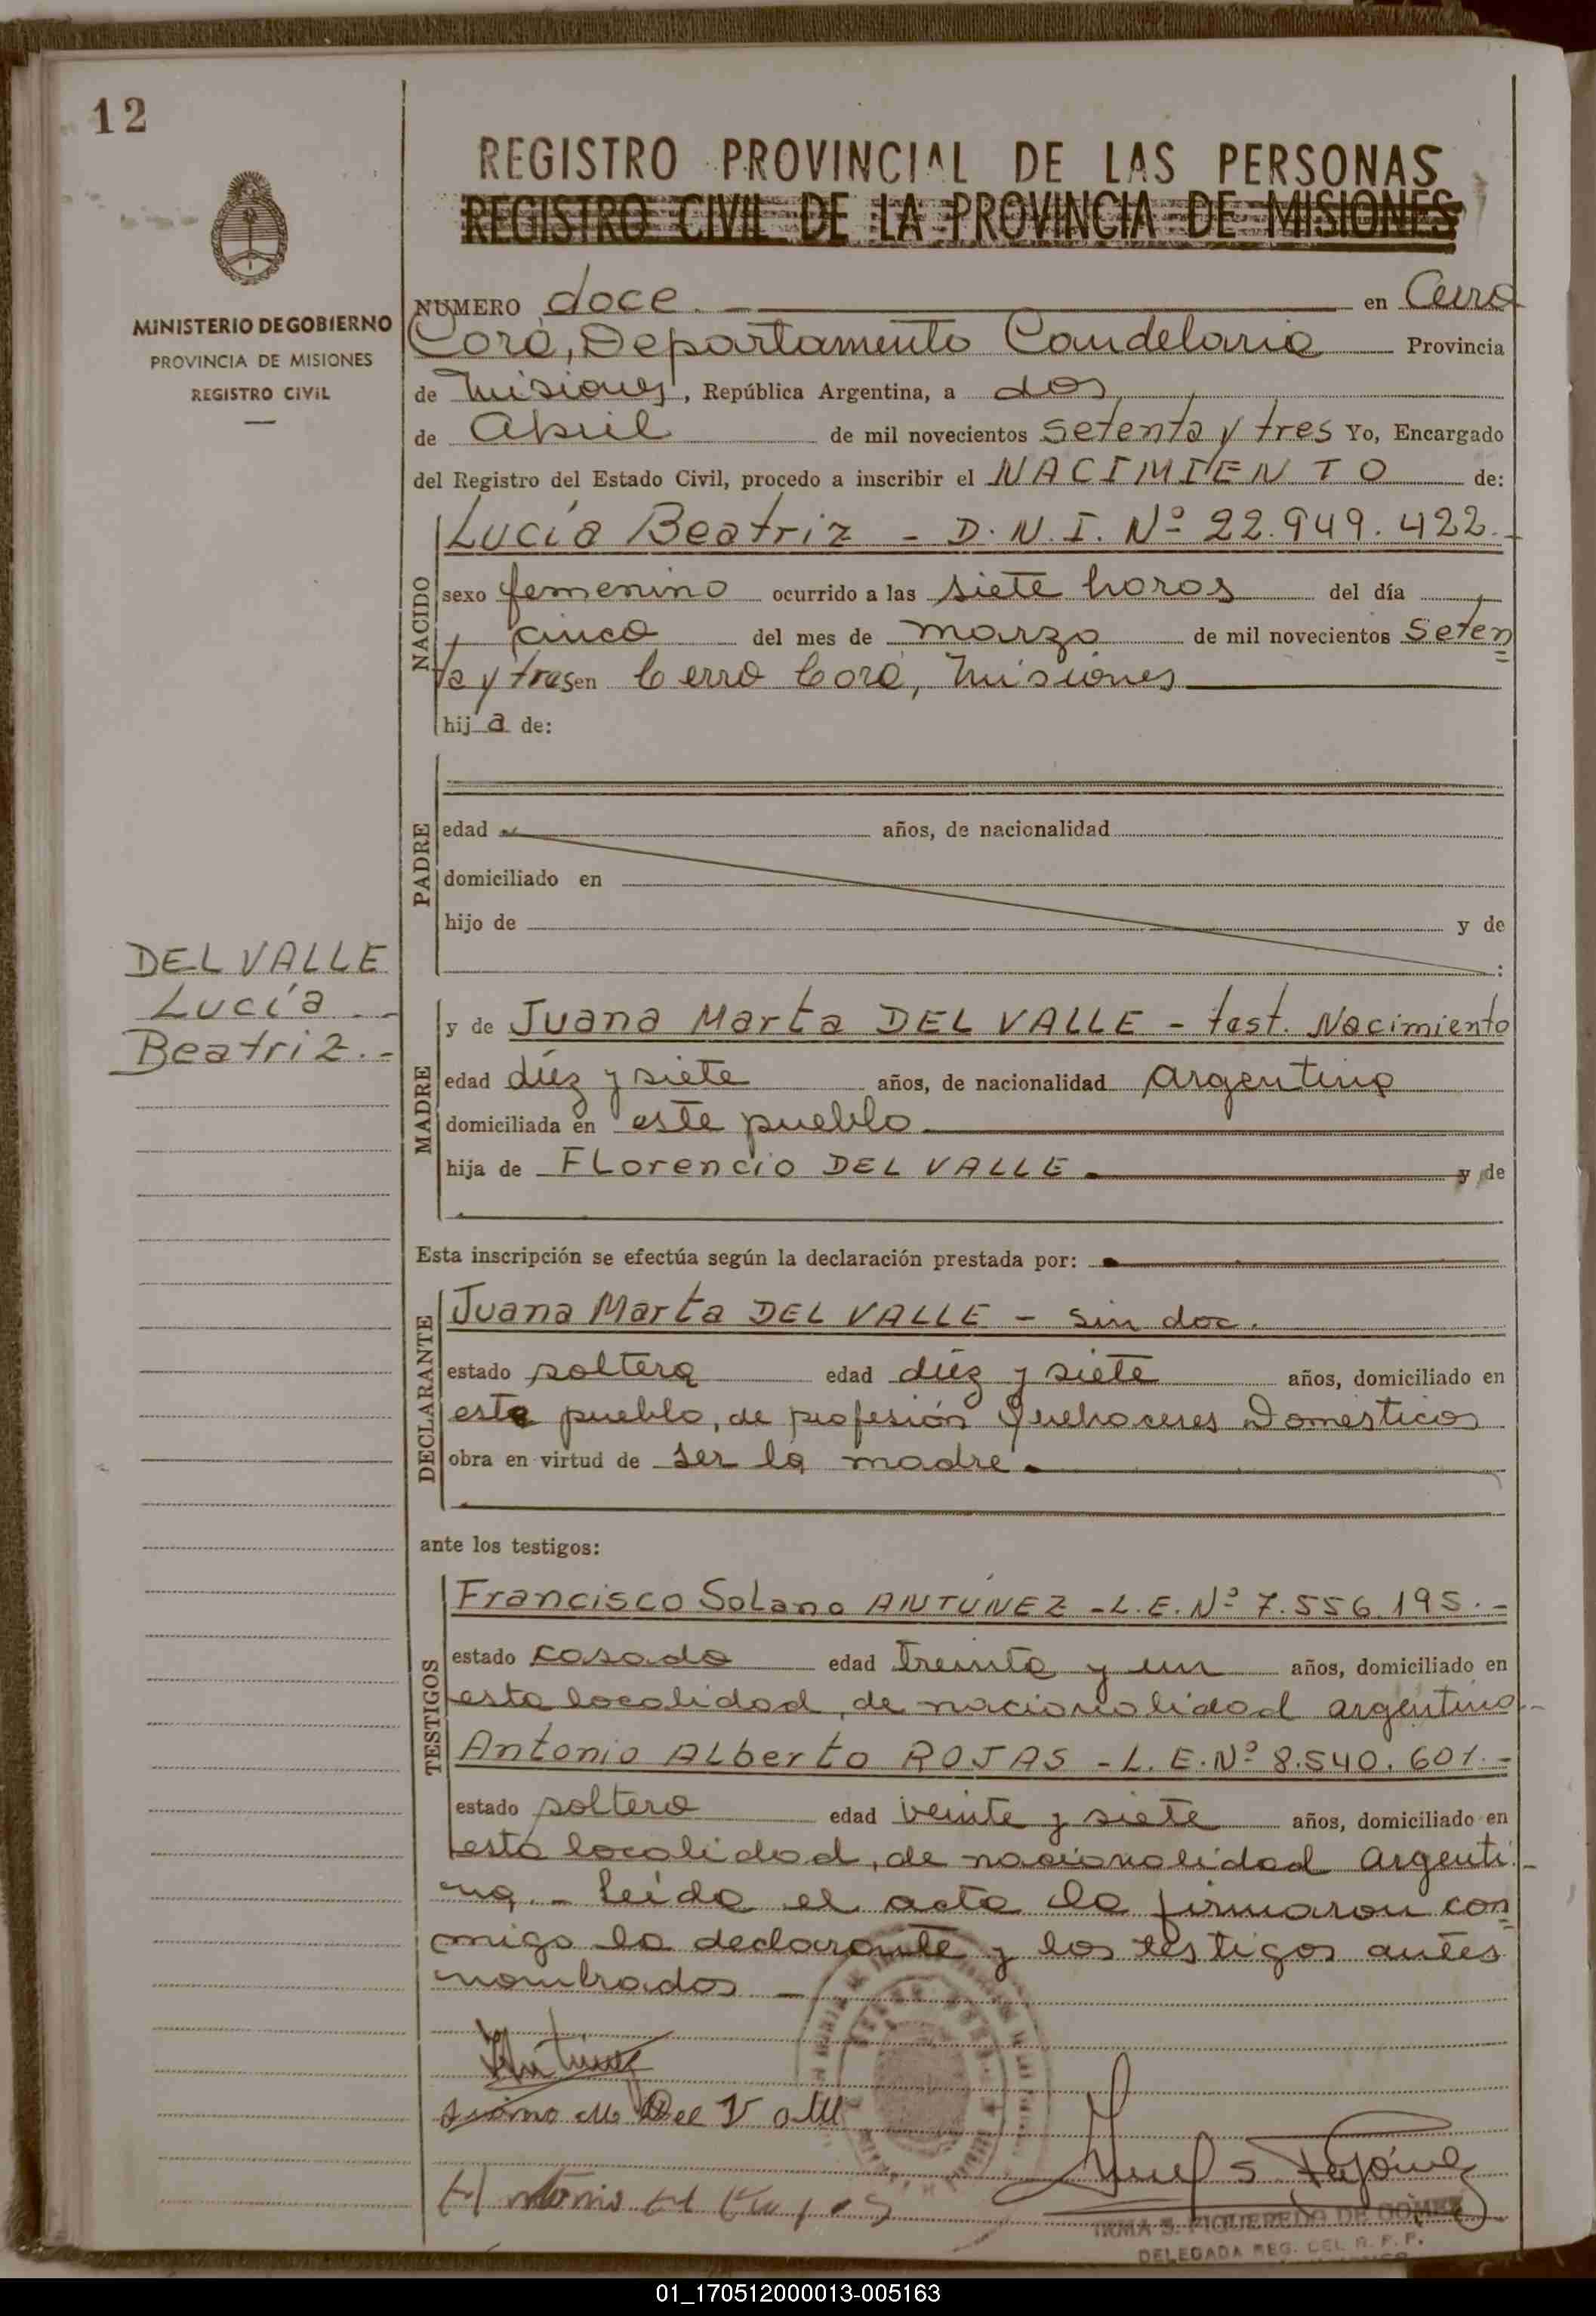 12
REGISTRO PROVINCIAL DE LAS PERSONAS
REGISTRO CIVIL DE LA PROVINCIA DE MISIONES
MINISTERIO DE GOBIERNO
PROVINCIA DE MISIONES
REGISTRO CIVIL
NUMERO doce. en Cerro
Corá, Departamento Candelaria Provincia
de Misiones, República Argentina, a dos
de Abril de mil novecientos setenta y tres Yo, Encargado
del Registro del Estado Civil, procedo a inscribir el NACIMIENTO de:
NACIDO
Lucía Beatriz - D.N.I. Nº 22.949.422.-
sexo femenino ocurrido a las siete horas del día
cinco del mes de marzo de mil novecientos Seten
ta y tres en Cerro Corá, Misiones
hija de:
PADRE
edad años, de nacionalidad
domiciliado en
hijo de y de
:
DEL VALLE
Lucía
Beatriz.-
MADRE
y de Juana Marta DEL VALLE - test. Nacimiento
edad diez y siete años, de nacionalidad argentina
domiciliada en este pueblo
hija de Florencio DEL VALLE. y de
Esta inscripción se efectúa según la declaración prestada por:
DECLARANTE
Juana Marta DEL VALLE - sin doc.
estado soltera edad diez y siete años, domiciliado en
este pueblo, de profesión Quehaceres Domesticos
obra en virtud de ser la madre.
ante los testigos:
TESTIGOS
Francisco Solano ANTUNEZ - L.E. Nº 7.556.195.-
estado casado edad treinta y un años, domiciliado en
esta localidad, de nacionalidad argentina.-
Antonio Alberto ROJAS - L.E. Nº 8.540.601.-
estado soltero edad veinte y siete años, domiciliado en
esta localidad, de nacionalidad argenti
na.- Leída el acta la firmaron con
migo la declarante y los testigos antes
nombrados -
Antunez
Juana M Del Valle
Antonio A
IRMA S. FIGUEREDO DE GOMEZ
DELEGADA REG. DEL R. P. P.
01_170512000013-005163